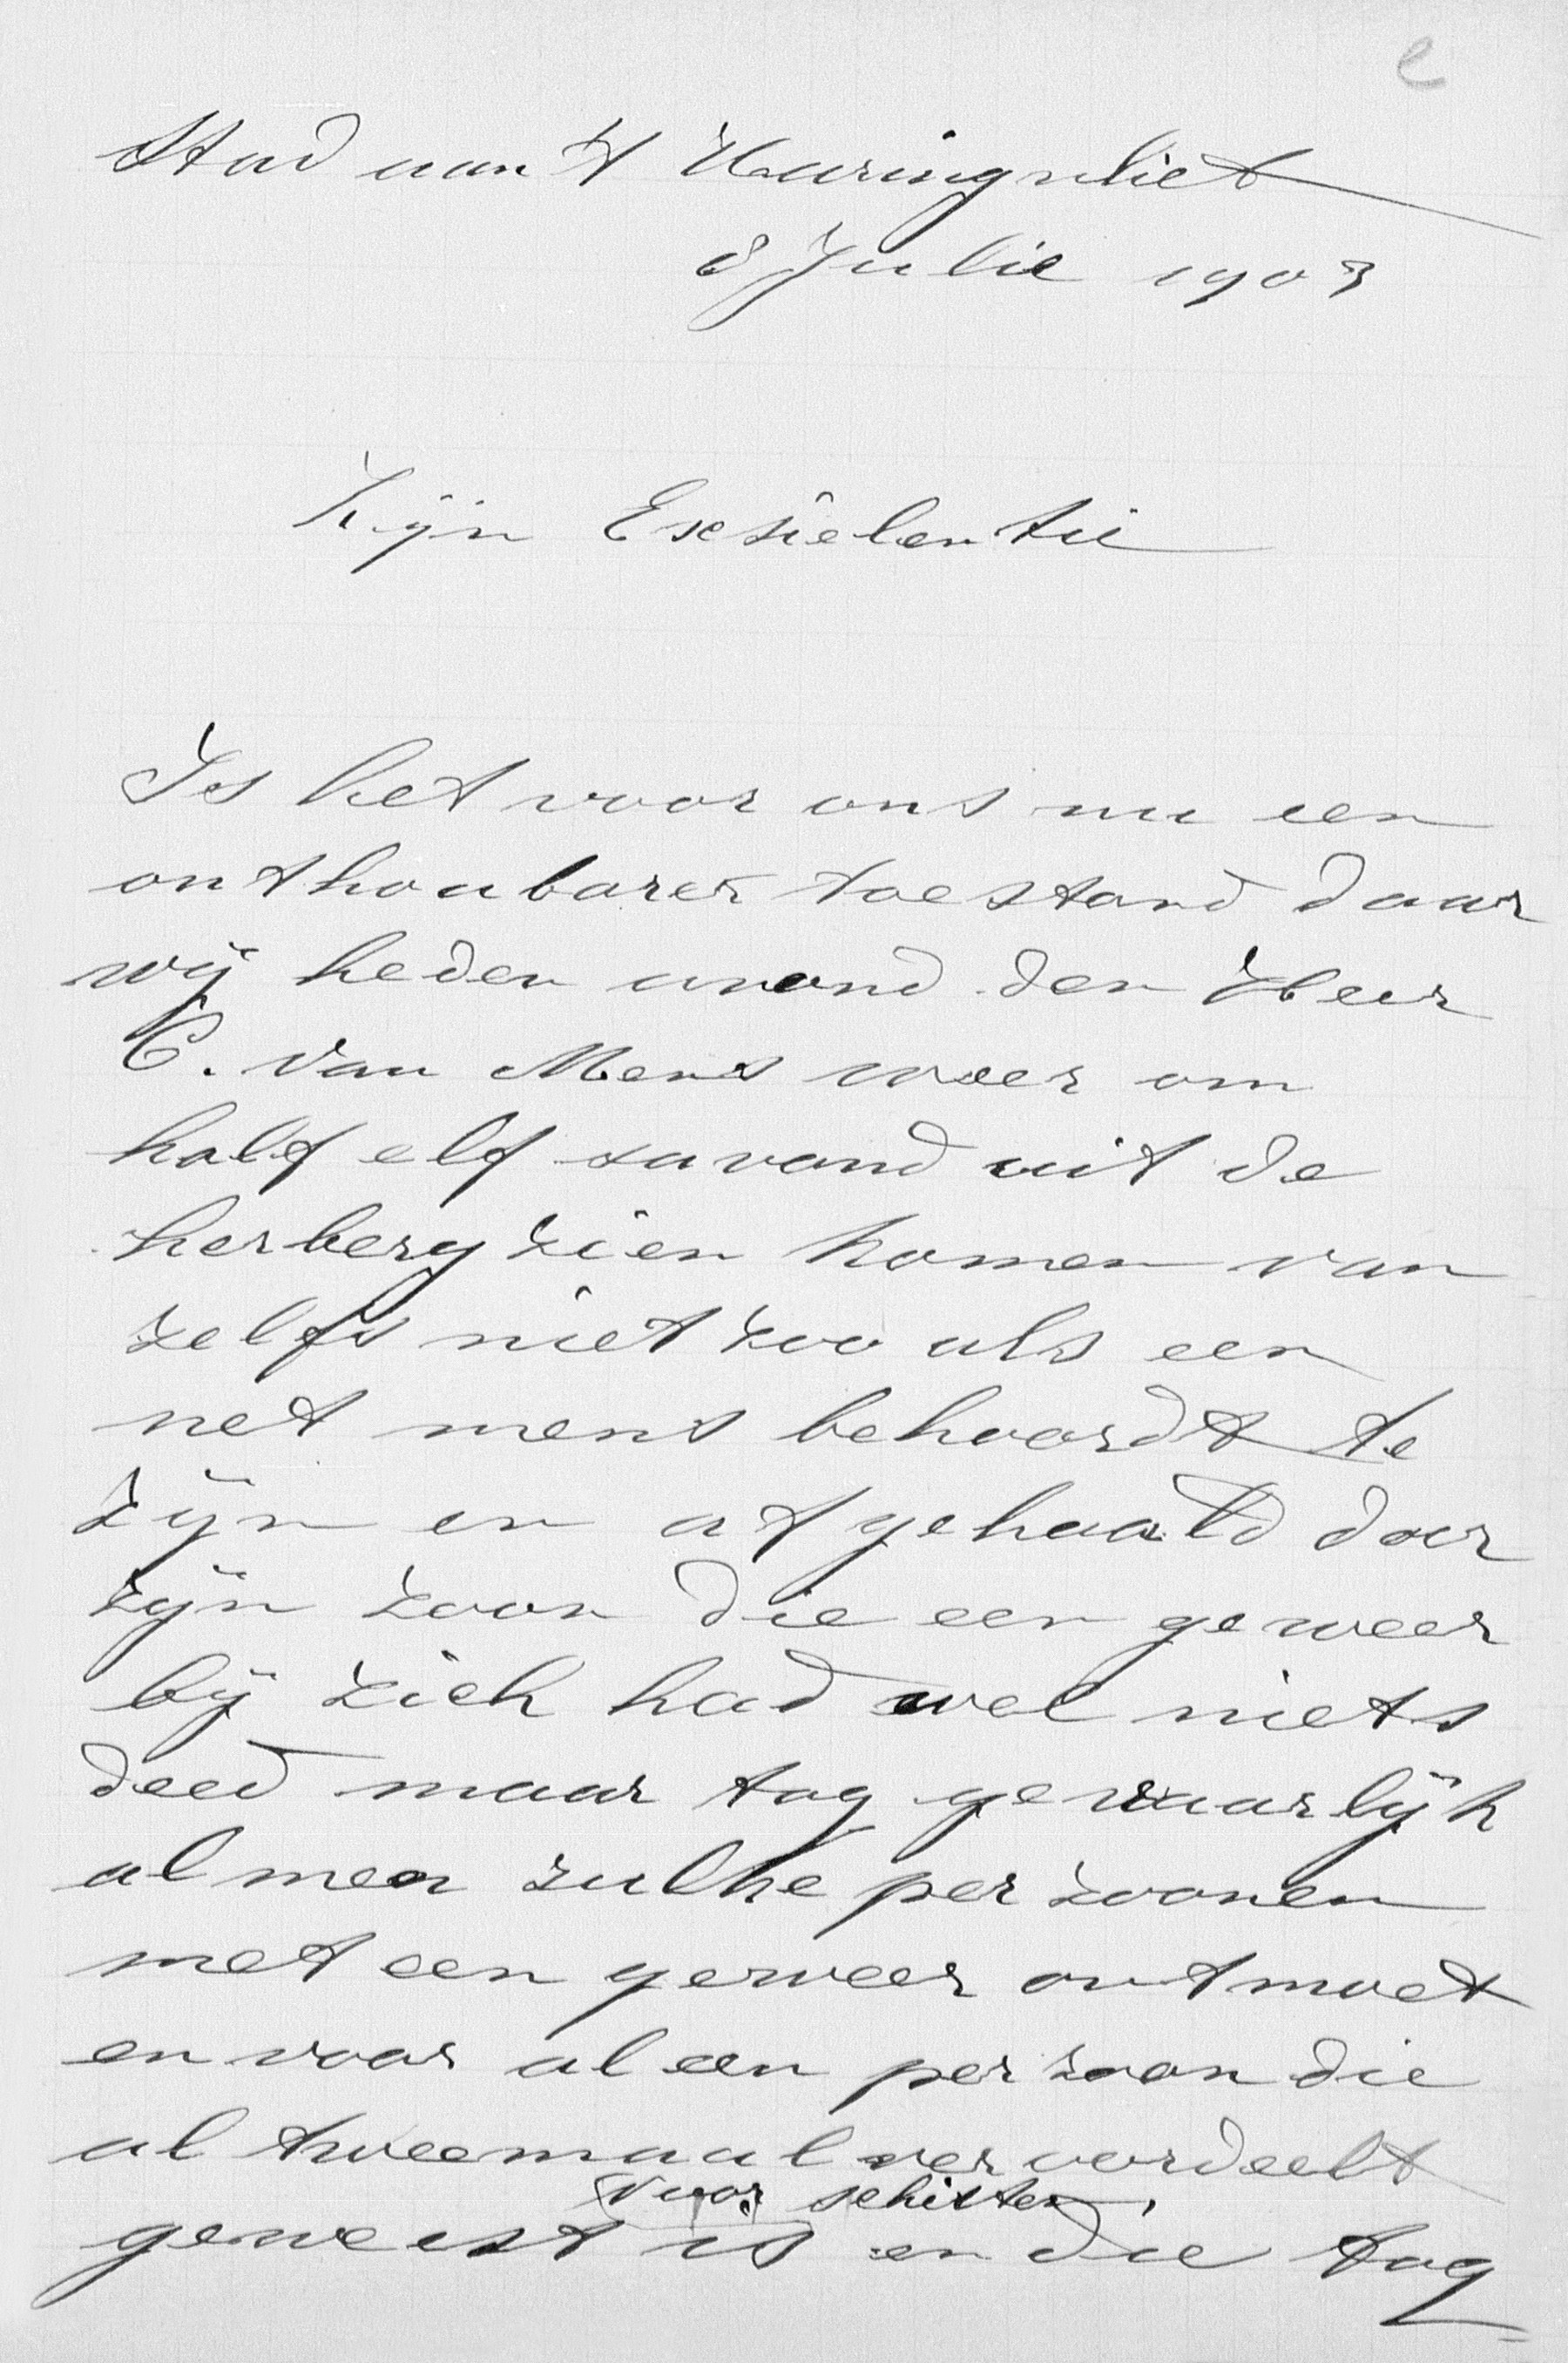 e
Stad aan 't Haringvliet
8 Julie 1903
Zijn Exsielentie
Is het voor ons nu een
onthoubarer toestand daar
wij heden avond den Heer
C. van Mens weer om
half elf savond uit de
herberg zien komen van
zelfs niet zoo als een
net mens behoordt te
zijn en afgehaald door
zijn zoon die een geweer
bij zich had wel niets
deed maar tog gevaarlijk
al men zulke perzoonen
met een geweer ontmoet
en voor al een perzoon die
al tweemaal veroordeelt
voor schieten
geweest is en die tog